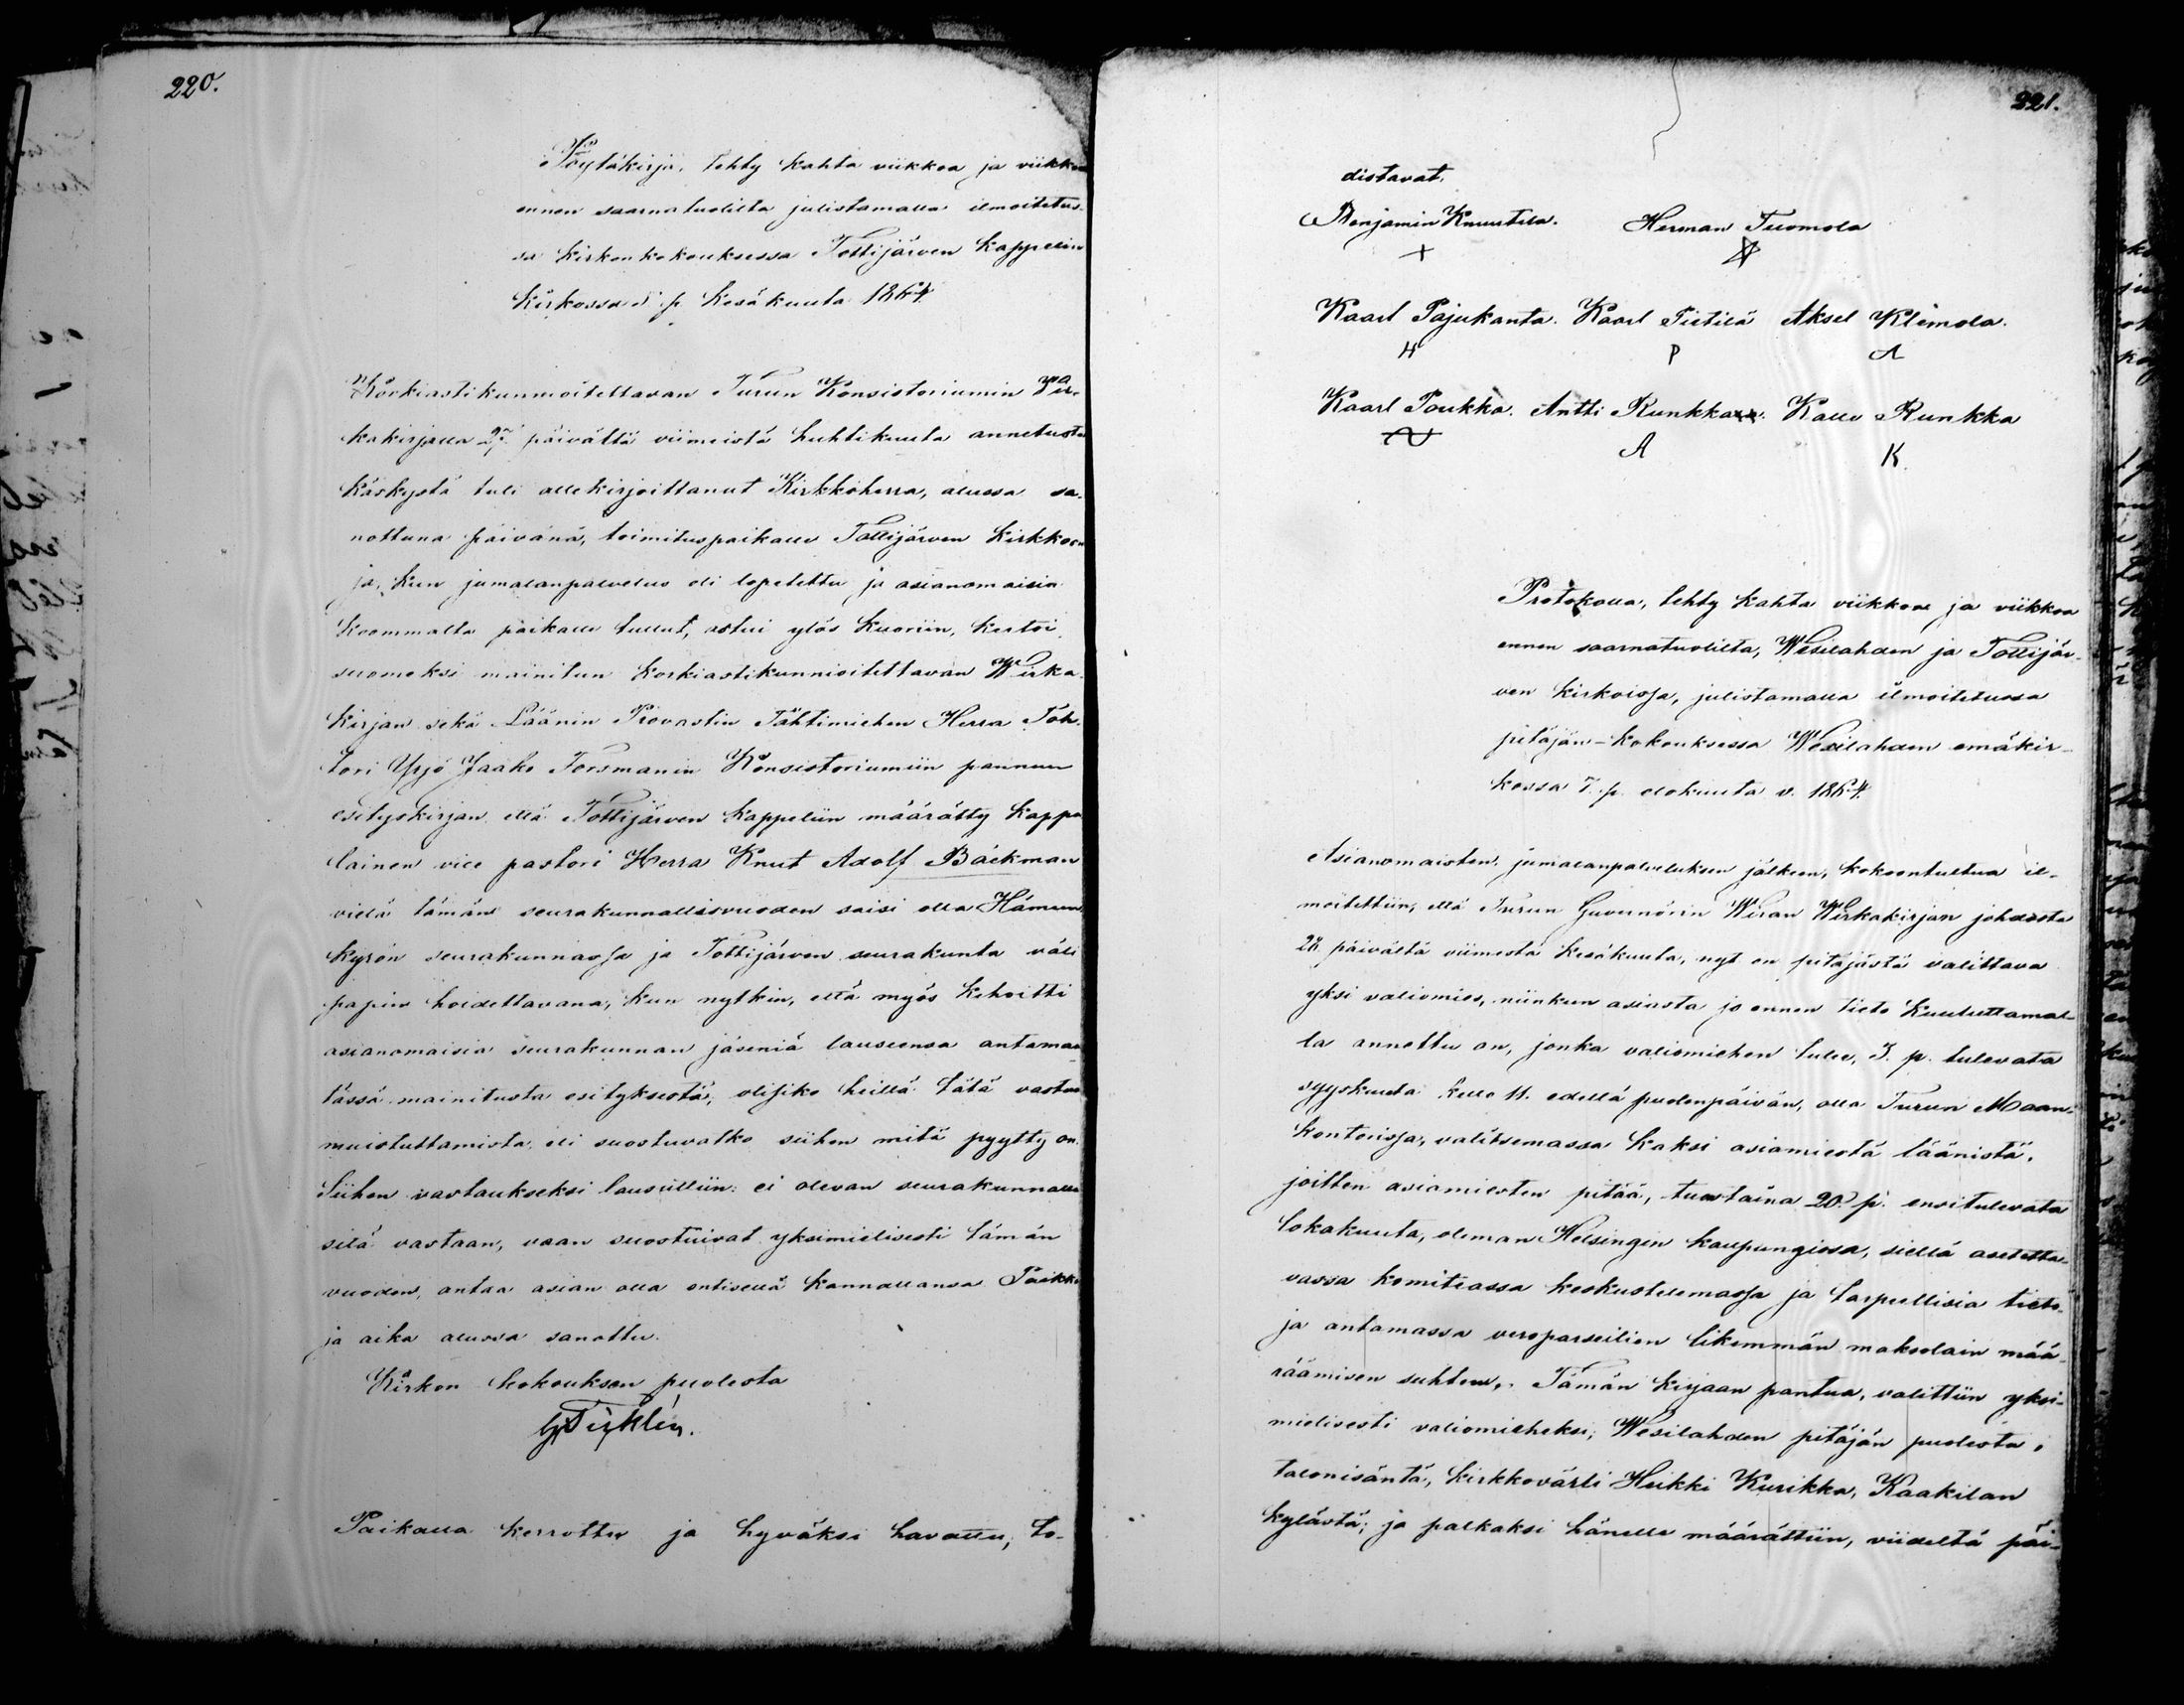 220.
Pöytäkirja, tehty kahta viikkoa ja viikkoa
ennen saarnatuolilta julistamalla ilmoitetus-
sa kirkonkokouksessa Tottijärven kappelin
kirkossa 5 p. Kesäkuuta 1864.
Korkiastikunnioitettavan Turun Konsistoriumin Wir-
kakirjalla 27 päivältä viimeistä huhtikuuta annetusta
käskystä tuli allekirjoittanut Kirkkoherra, alussa sa-
nottuna päivänä, toimituspaikalle Tottijärven kirkkoon
ja, kun jumalanpalvelus oli lopetettu ja asianomaisia
koommalta paikalle tullut, astui ylös kuoriin, kertoi
suomeksi mainitun korkiastikunnioitettavan Wirka-
kirjan sekä Läänin Provastin Tähtimiehen Herra Toh-
tori Yrjö Jaako Forsmanin Konsistoriumiin pannun
esityskirjan että Tottijärven kappeliin määrätty kappa
lainen vice pastori Herra Knut Adolf Bäckman
vielä tämän seurakunnallisvuoden saisi olla Hämeen-
kyrön seurakunnassa ja Tottijärven seurakunta väli
papin hoidettavana, kun nytkin, että myös kehoitti
asianomaisia seurakunnan jäseniä lauseensa antamaan
tässä mainitusta esityksestä, olisiko heillä tätä vastaan
muistuttamista eli suostuvatko siihen mitä pyytty on.
Siihen vastaukseksi lausuttiin: ei olevan seurakunnalla
sitä vastaan, vaan suostuivat yksimielisesti tämän
vuoden, antaa asian olla entisellä kannallansa Paikka
ja aika alussa sanottu.
Kirkon kokouksen puolesta
Paikalla kerrottu ja hyväksi havattu, to-
221.
distavat.
Benjamin Knuutila. Herman Tuomola
Kaarl Pajukanta. Kaarl Pietilä Aksel Klemola.
H P A
Kaarl Poukka. Antti Runkka Kalle Runkka
A K.
Protokolla, tehty kahta viikkoa ja viikkoa
ennen saarnatuolilta, Wesilahden ja Tottijär-
ven kirkoissa, julistamalla ilmoitetussa
pitäjän-kokouksessa Wesilahden emäkir-
kossa 7. p. elokuuta v. 1864.
Asianomaisten, jumalanpalveluksen jälkeen, kokoontultua il-
moitettiin, että Turun Guvernörin Wiran Wirkakirjan johdosta
28 päivältä viimestä kesäkuuta, nyt on pitäjästä valittava
yksi valiomies, niinkun asiasta jo ennen tieto kuuluttamal-
la annettu on, jonka valiomiehen tulee, 5. p. tulevata
syyskuuta kello 11. edellä puolenpäivän, olla Turun Maan-
kontorissa, valitsemassa kaksi asiamiestä läänistä,
joitten asiamiesten pitää, tuostaina 20. p. ensitulevata
lokakuuta, oleman Helsingin kaupungissa, siellä asetetta-
vassa komiteassa keskustelemassa ja tarpeellisia tieto-
ja antamassa veroparseilien likemmän maksolain mää-
räämisen suhteen,. Tämän kirjaan pantua, valittiin yksi-
mielisesti valiomieheksi, Wesilahden pitäjän puolesta,
talonisäntä, kirkkovärti Heikki Kurikka, Kaakilan
kylästä; ja palkaksi hänelle määrättiin, viideltä päi-